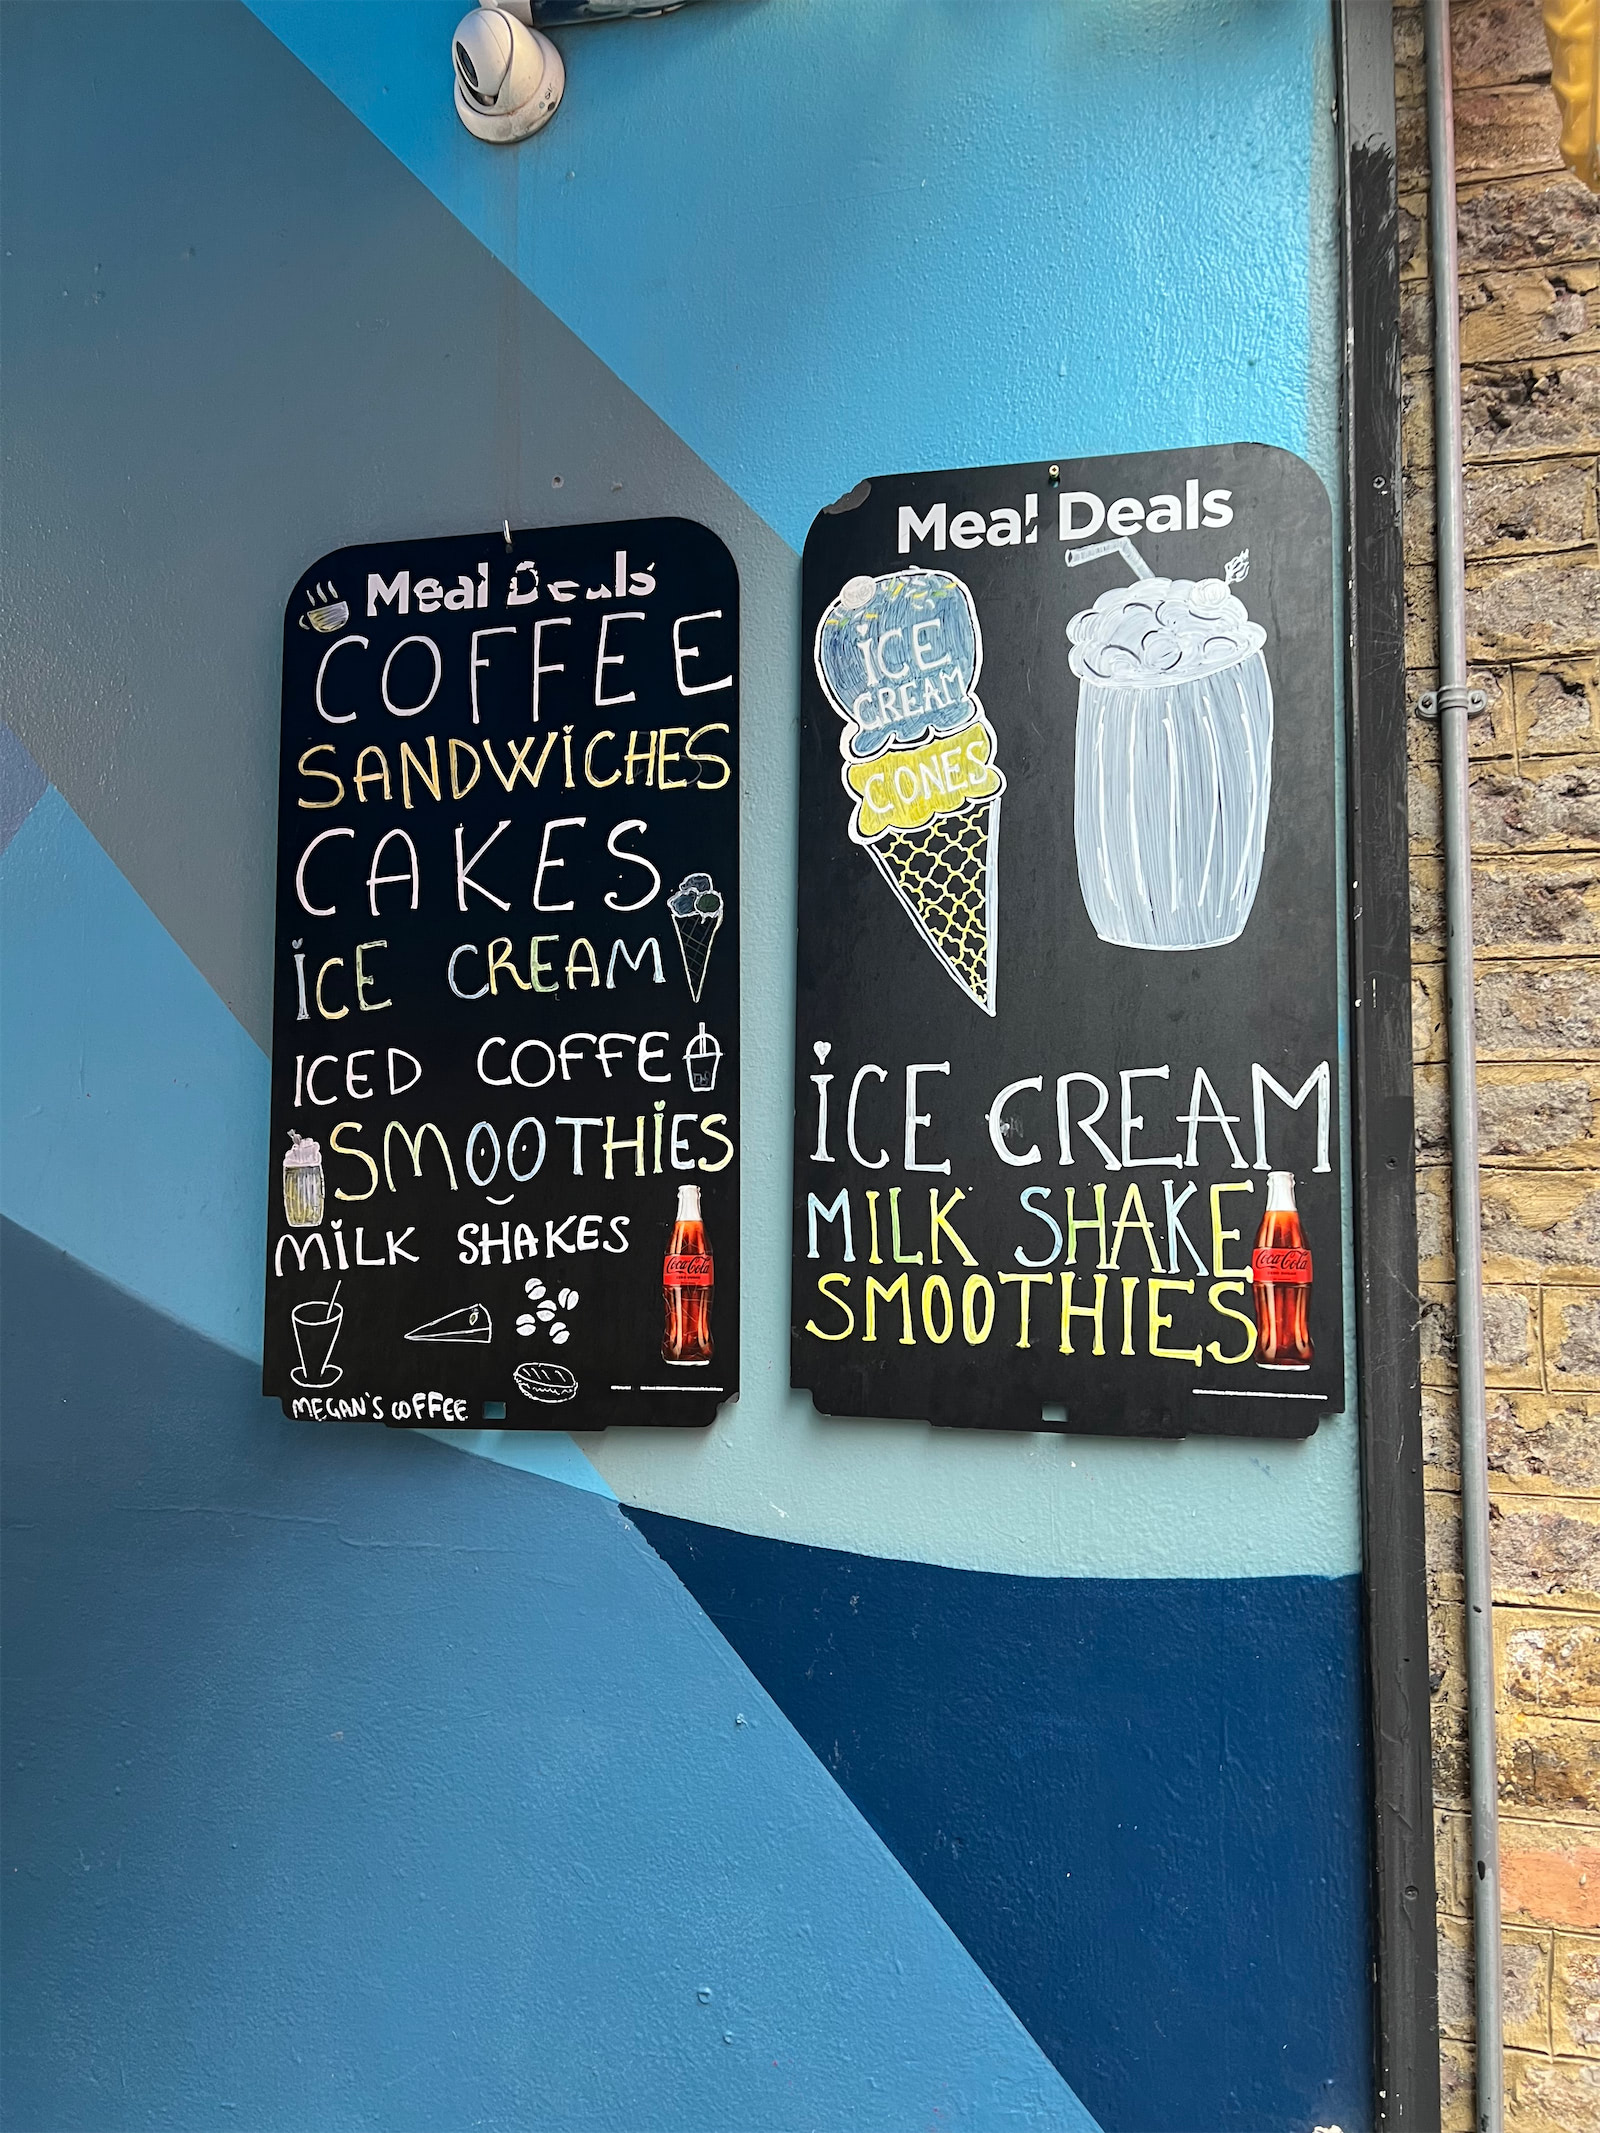 Meal Deals
COFFEE
SANDWiCHES
CAKES
iCE CREAM
ICED COFFE
SMOOTHiES
MiLK SHAKES
Coca-Cola
MEGAN'S COFFEE
Meal Deals
iCE
CREAM
CONES
iCE CREAM
MILK SHAKE
Coca-Cola
SMOOTHIES